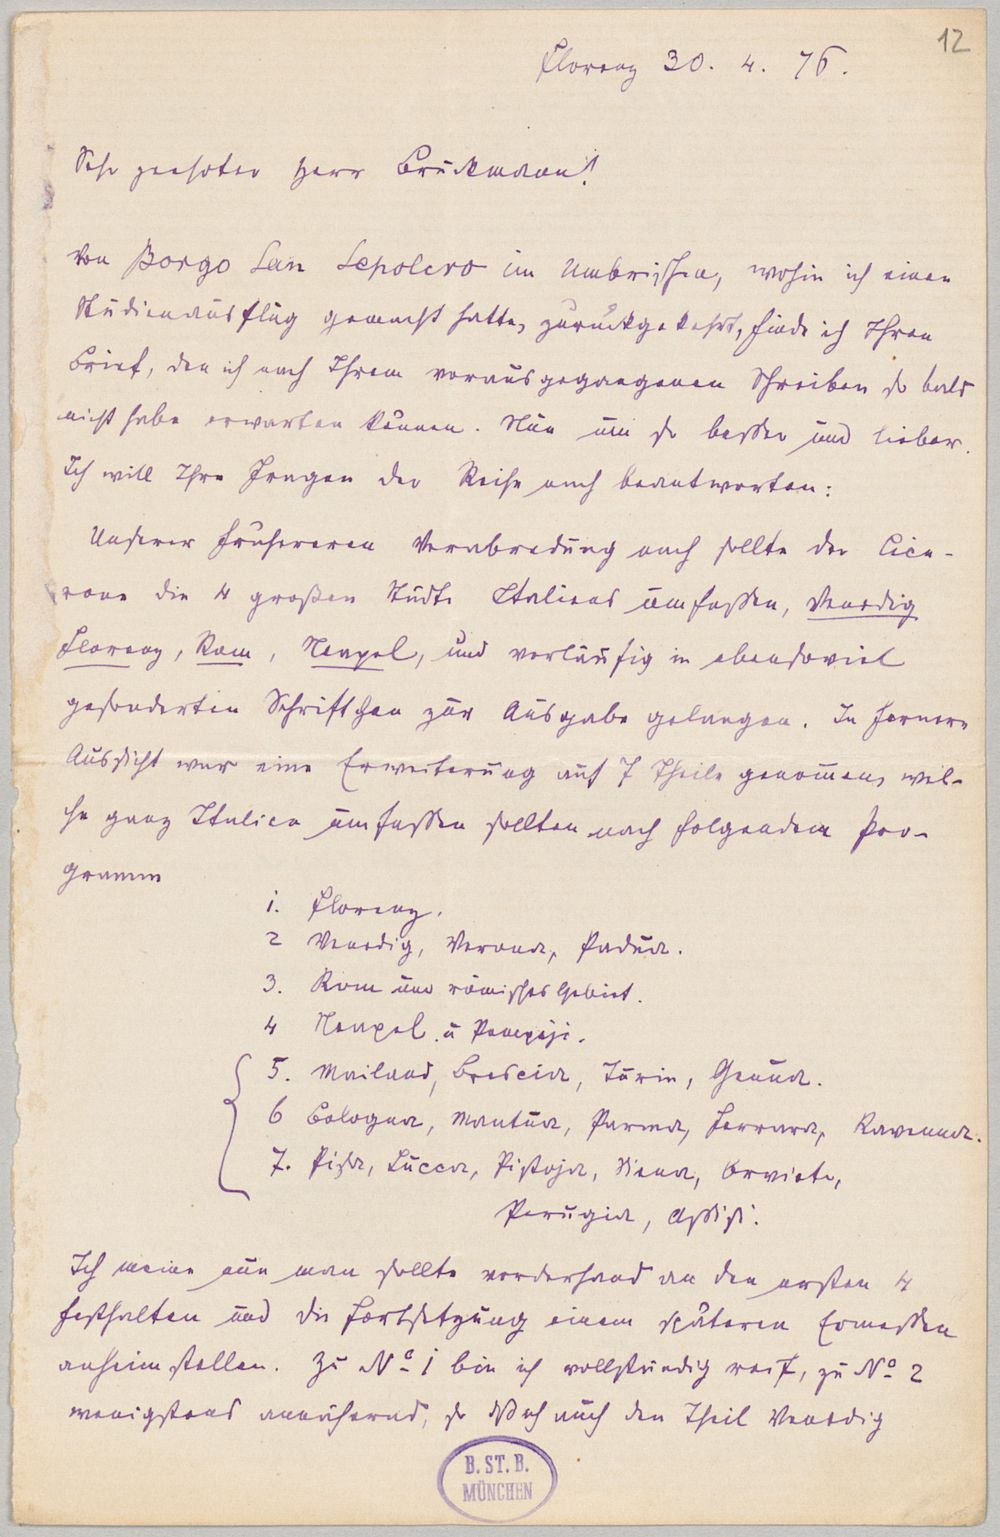 12
Florenz 30. 4. 76.
Sehr geehrter Herr Bruckmann!
Von Borgo San Sepolcro im Umbrischen, wohin ich einen
Studienausflug gemacht hatte, zurückgekehrt, finde ich Ihren
Brief, den ich nach Ihrem vorausgegangenen Schreiben so bald
nicht habe erwarten können. Nun um so besser und lieber.
Ich will Ihre Fragen der Reihe nach beantworten:
Unserer früheren Verabredung nach sollte der Cice-
rone die 4 großen Städte Italiens umfassen, Venedig
Florenz, Rom, Neapel, und vorläufig in ebensoviel
gesonderten Schriftchen zur Ausgabe gelangen. In fernere
Aussicht war eine Erweiterung auf 7 Theile genommen, wel-
che ganz Italien umfassen sollten nach folgendem Pro-
gramm
1. Florenz.
2 Venedig, Verona, Padua.
3. Rom und römisches Gebiet.
4 Neapel u Pompeji.
5. Mailand, Brescia, Turin, Genua.
6 Bologna, Mantua, Parma, Ferrara, Ravenna.
7. Pisa, Lucca, Pistoja, Siena, Orvieto,
Perugia, Assisi.
Ich meine nun man sollte vorderhand an den ersten 4
festhalten und die Fortsetzung einem späteren Ermessen
anheimstellen. Zu No 1 bin ich vollständig reif, zu No 2
wenigstens annähernd, so daß ich auch den Theil Venedig
B. ST. B.
MÜNCHEN